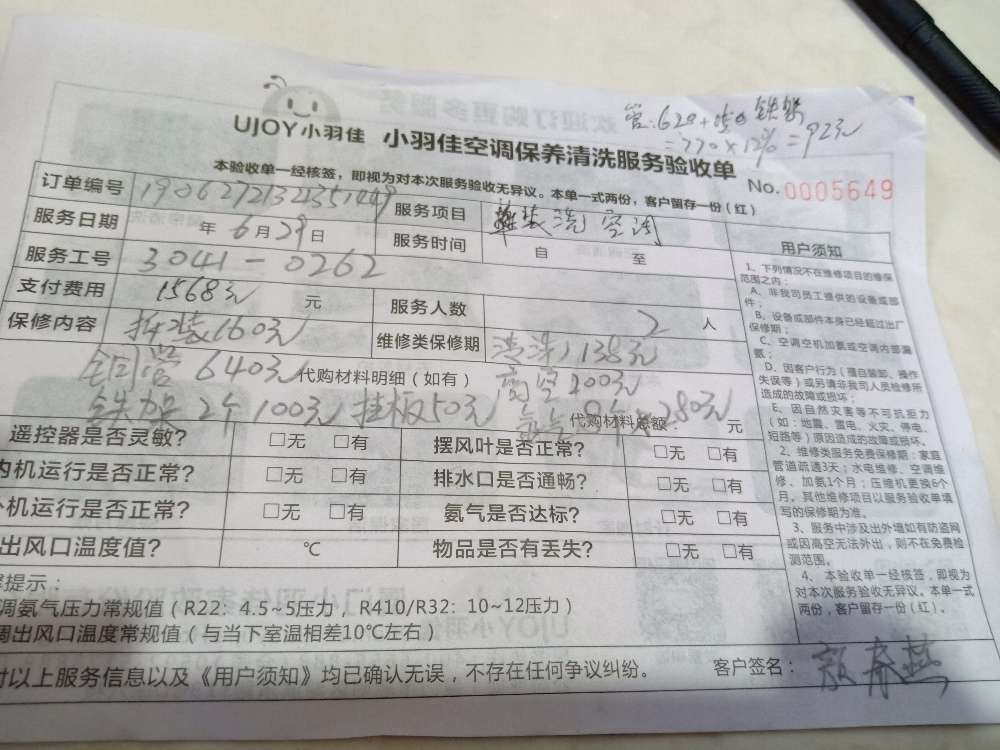 管:620+ 铁架
=770×12%=92元
UJOY小羽佳 小羽佳空调保养清洗服务验收单
本验收单一经核签，即视为对本次服务验收无异议。本单一式两份，客户留存一份（红）
No.0005649
订单编号 服务项目 洗空调
服务日期 年6月29日 服务时间 自 至
服务工号 3041-0262
支付费用 1568元 元 服务人数 2 人
保修内容 拆装160元 维修类保修期 清洗138元
铜管640元 代购材料明细（如有） 高空200元
铁架2个100元 挂板50元 代购材料总额 280元 元
遥控器是否灵敏？ □无 □有 摆风叶是否正常？ □无 □有
内机运行是否正常？ □无 □有 排水口是否通畅？ □无 □有
外机运行是否正常？ □无 □有 氨气是否达标？ □无 □有
出风口温度值？ ℃ 物品是否有丢失？ □无 □有
提示：
调氨气压力常规值（R22：4.5~5压力，R410/R32：10~12压力）
调出风口温度常规值（与当下室温相差10℃左右）
对以上服务信息以及《用户须知》均已确认无误，不存在任何争议纠纷。
客户签名： 春燕
用户须知
1、下列情况不在维修项目的修保
范围之内：
A、非我司员工提供的设备或部
件；
B、设备或部件本身已经超过出厂
保修期；
C、空调空机加氨或空调内部漏
氨；
D、因客户行为（擅自装卸、操作
失误等）或另请非我司人员检修所
造成的故障或损坏；
E、因自然灾害等不可抗拒力
（如：地震、雷电、火灾、停电、
短路等）原因造成的故障或损坏。
2、维修类服务免费保修期：家庭
管道疏通3天；水电维修、空调维
修、加氨1个月；压缩机更换6个
月。其他维修项目以服务验收单填
写的保修期为准。
3、服务中涉及出外墙如有防盗网
或因高空无法外出，则不在免费检
测范围。
4、本验收单一经核签，即视为
对本次服务验收无异议。本单一式
两份，客户留存一份（红）。